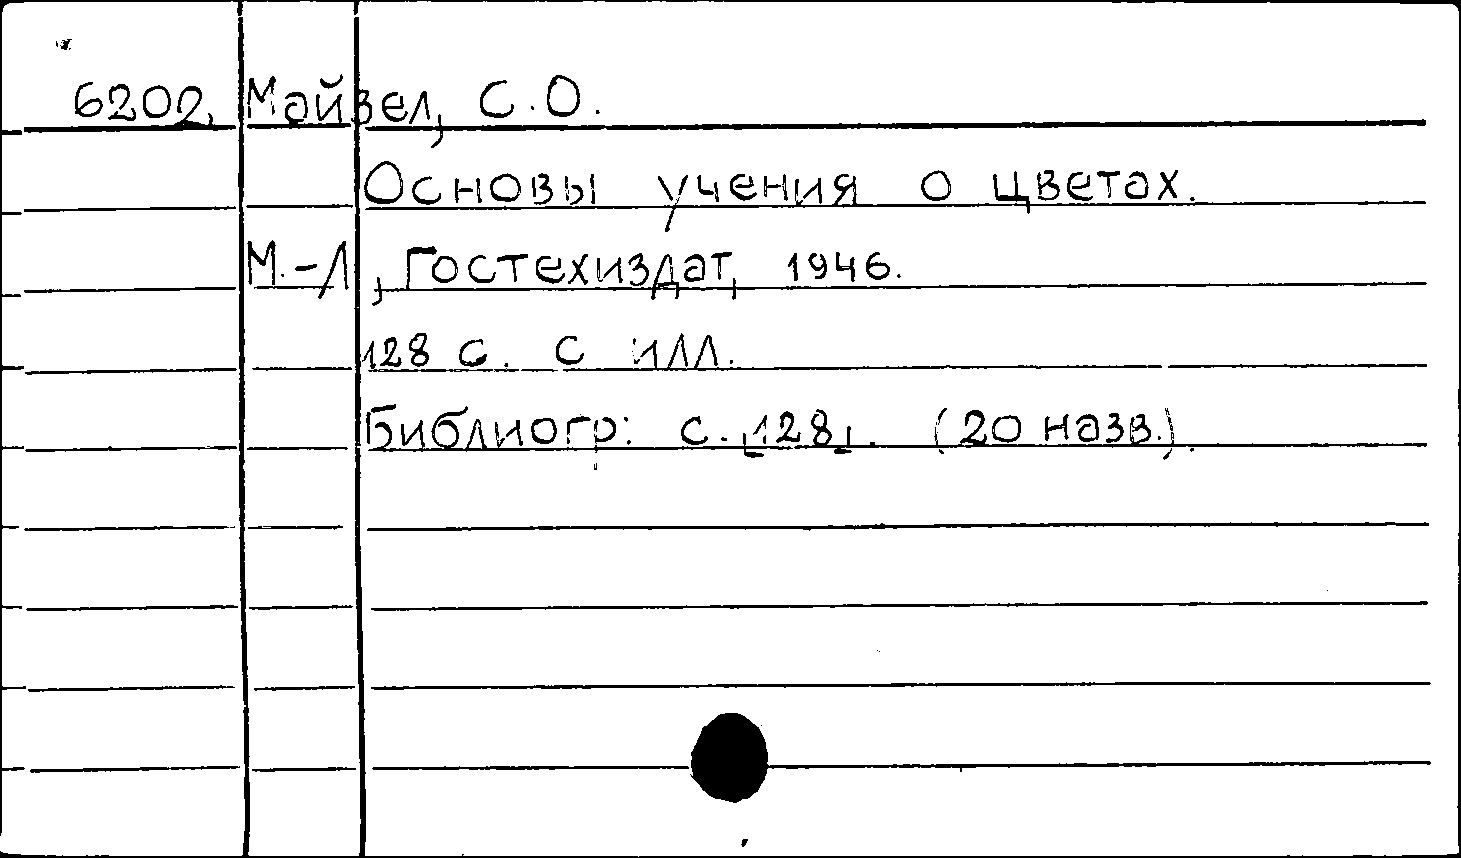 6202. Майзел, С.О.
Основы учения о цветах.
М.-Л, Гостехиздат, 1946.
128 с. с илл.
Библиогр: с. [128]. (20 назв.).